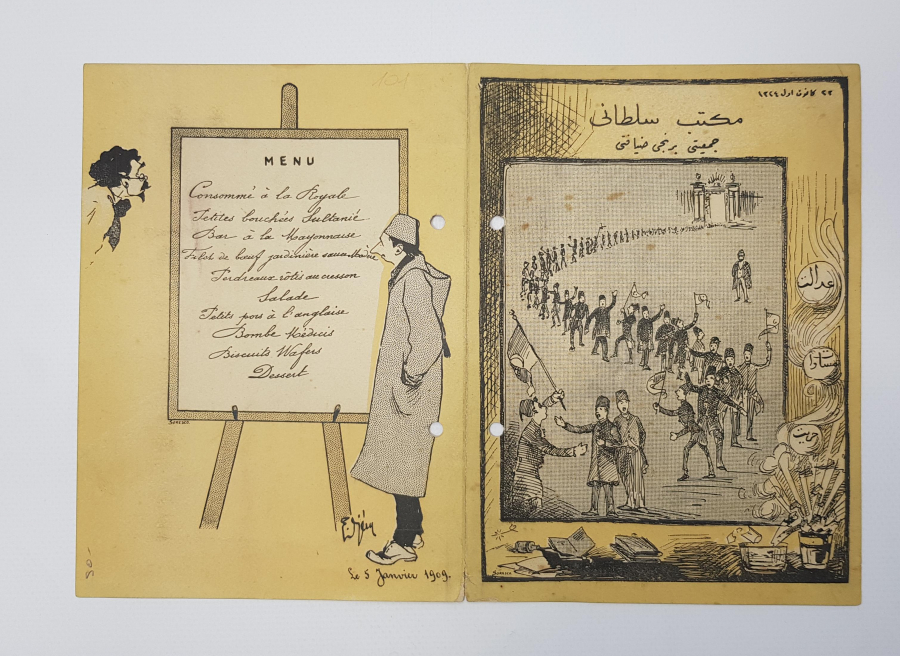 MENU
Consommé à la Royale
Petites bouchées Sultanié
Bar à la Mayonnaise
Filet de bœuf jardinière sauce
Perdreaux rôtis au cresson
Salade
Petits pois à l'anglaise
Bombe Médicis
Biscuits Wafers
Dessert
Le 5 Janvier 1909.
٢٣ كانون اول ١٣٢٤
مكتب سلطانى
جمعيتى برنجى ضيافتى
عدالت
مساوات
حريت